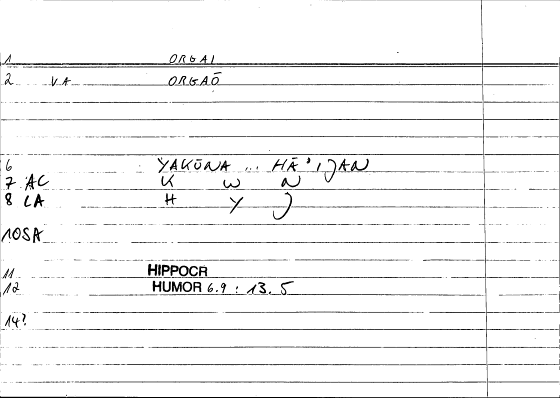 1 ORGAI
2 VA ORGAŌ
6 YAKŪNA ... HĀ'IJAN
7 AC K W N
8 LA H Y J
10 SA
11 HIPPOCR
12 HUMOR 6.9 : 13.5
14?